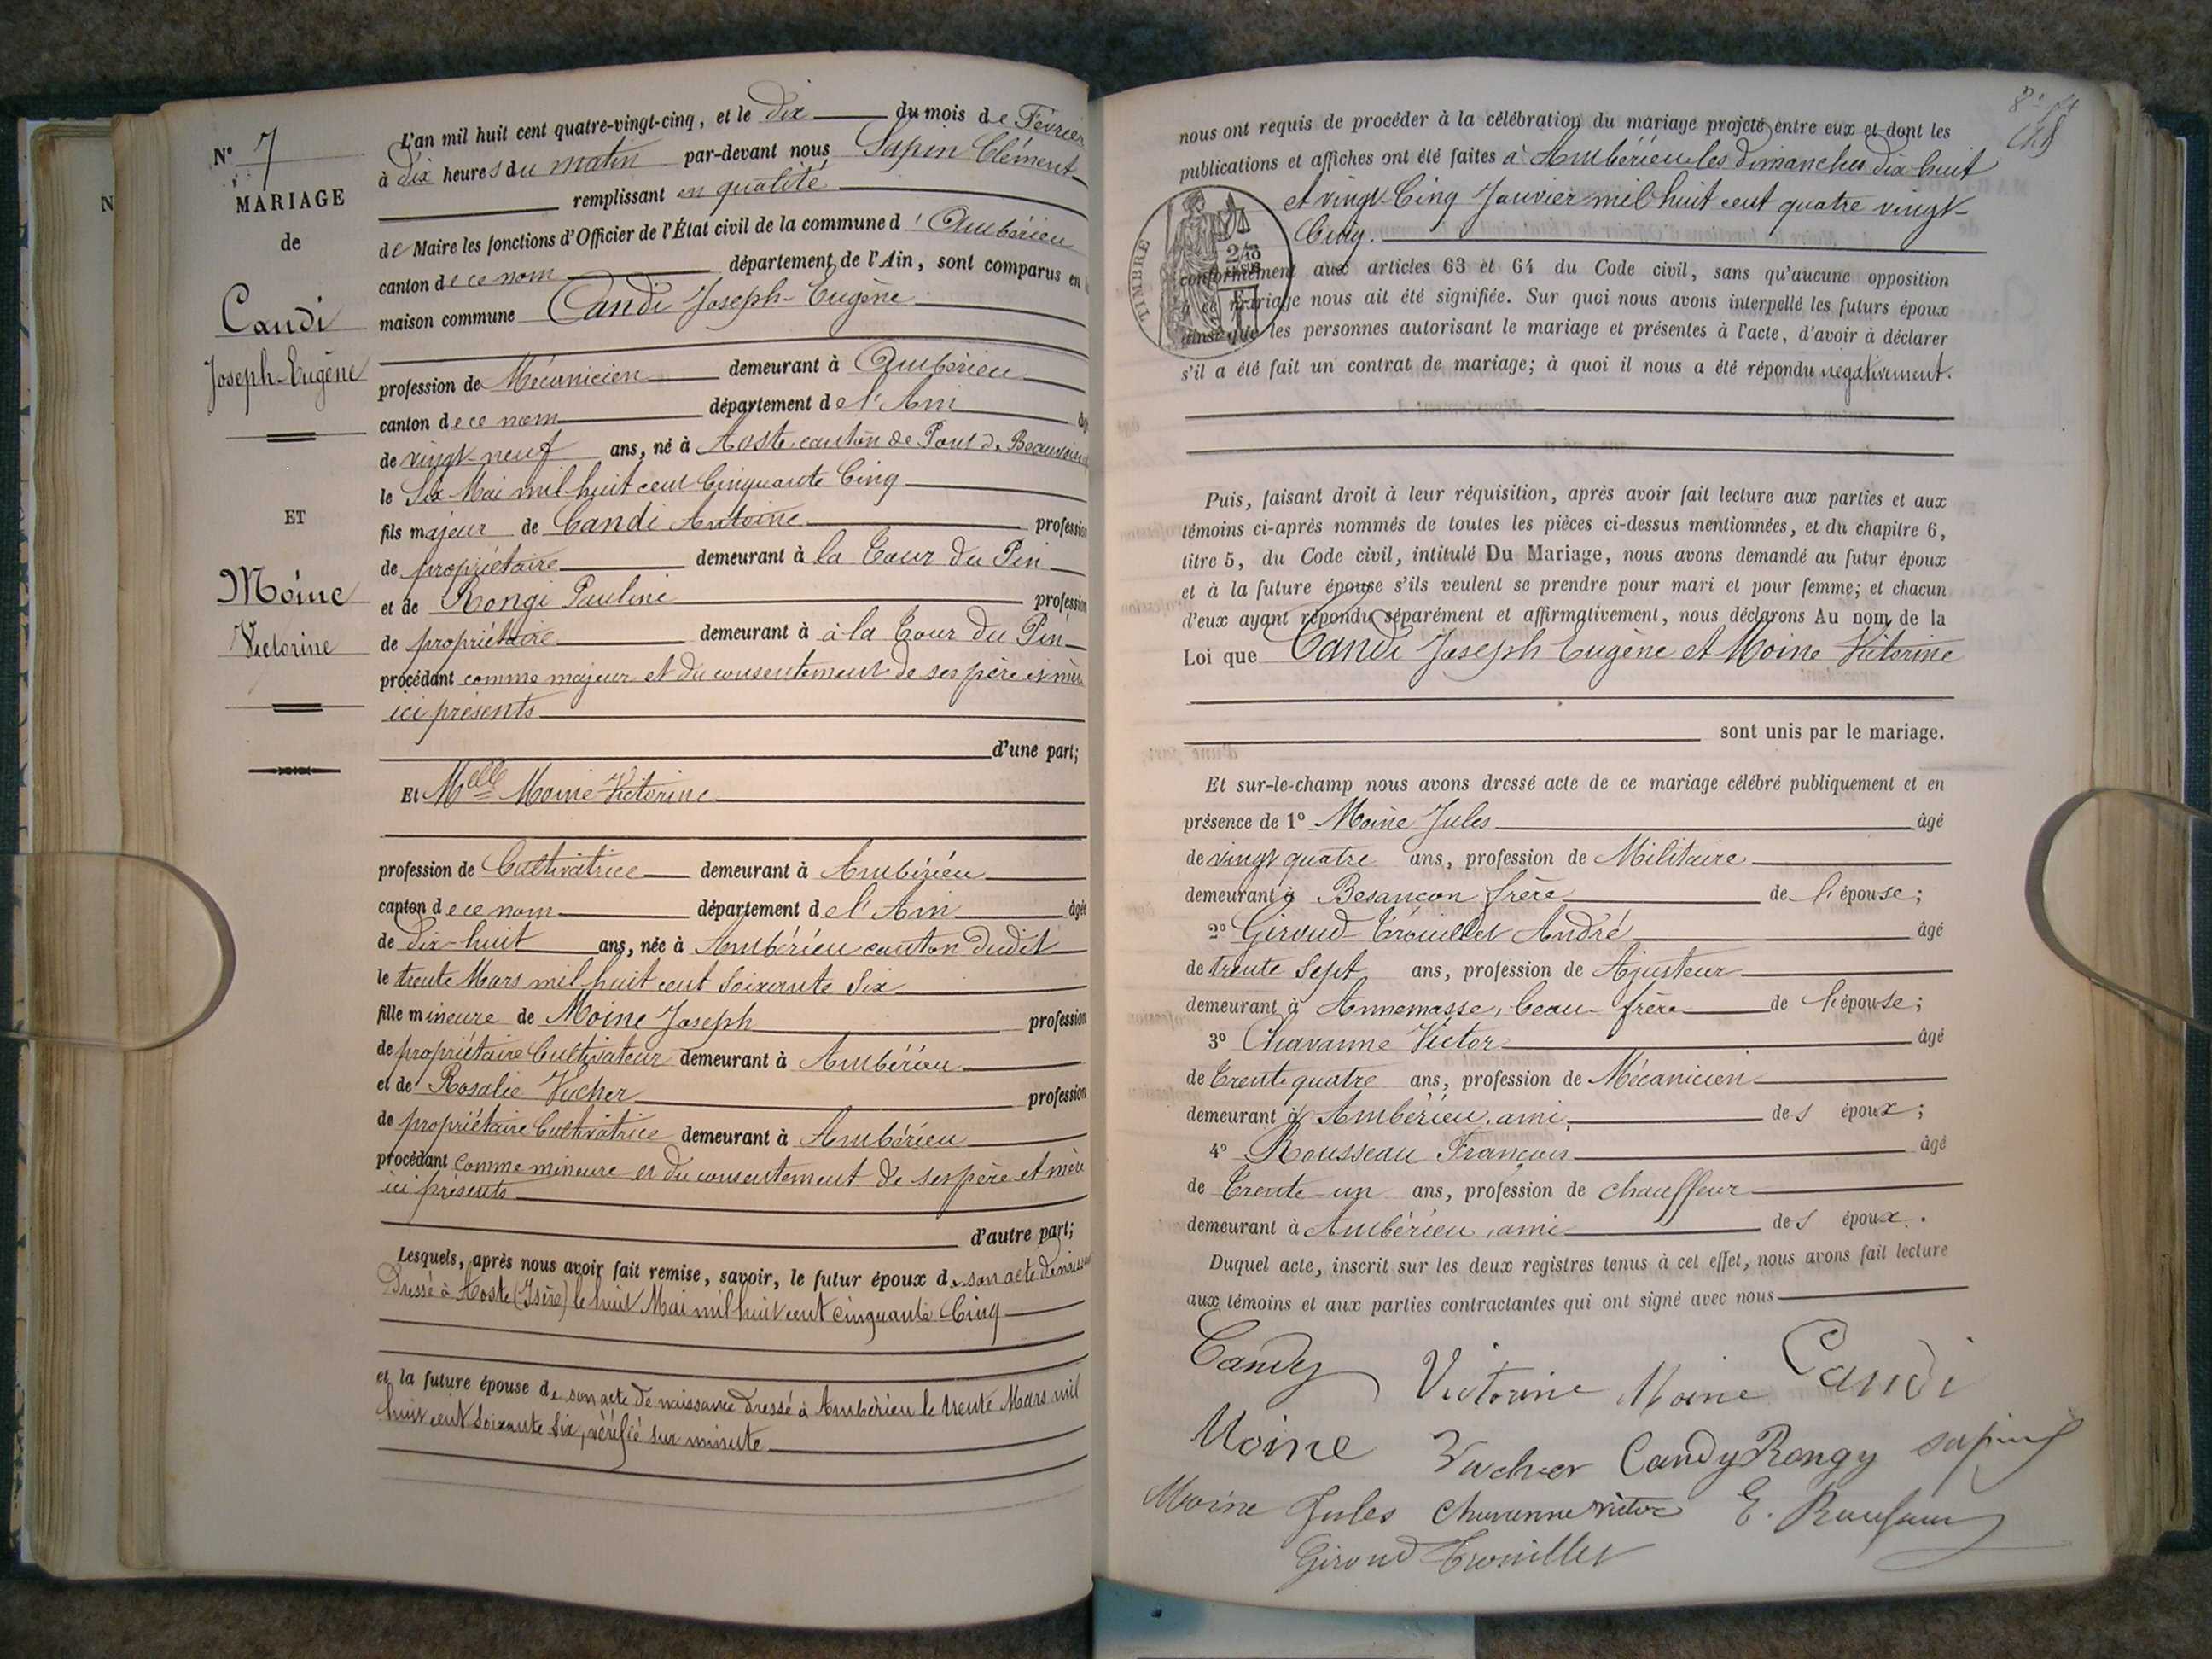 N° 7
MARIAGE
de
Candi
Joseph-Eugène
ET
Moine
Victorine
L'an mil huit cent quatre-vingt-cinq, et le dix du mois de Février
à dix heures du matin par-devant nous Sapin Clément
remplissant en qualité
de Maire les fonctions d'Officier de l'État civil de la commune d'Ambérieu
canton de ce nom département de l'Ain, sont comparus en
maison commune Candi Joseph-Eugène
profession de Mécanicien demeurant à Ambérieu
canton de ce nom département de l'Ain
de vingt-neuf ans, né à Aoste canton de Pont de Beauvoisin
le Six Mai mil huit cent Cinquante Cinq
fils majeur de Candi Antoine profession
de propriétaire demeurant à la Tour du Pin
et de Rongi Pauline profession
de propriétaire demeurant à à la Tour du Pin
procédant comme majeur et du consentement de ses père et mère
ici présents
d'une part;
Et Melle Moine Victorine
profession de Cultivatrice demeurant à Ambérieu
canton de ce nom département de l'Ain âgée
de dix-huit ans, née à Ambérieu canton dudit
le trente Mars mil huit cent soixante six
fille mineure de Moine Joseph profession
de propriétaire Cultivateur demeurant à Ambérieu
et de Rosalie Vucher profession
de propriétaire Cultivatrice demeurant à Ambérieu
procédant comme mineure et du consentement de ses père et mère
ici présents
d'autre part;
Lesquels, après nous avoir fait remise, savoir, le futur époux de son acte de naissance
Dressé à Aoste (Isère) le huit Mai mil huit cent cinquante Cinq
et la future épouse de son acte de naissance dressé à Ambérieu le trente Mars mil
huit cent soixante six, vérifié sur minute
48
nous ont requis de procéder à la célébration du mariage projeté entre eux et dont les
publications et affiches ont été faites à Ambérieu les dimanches dix huit
et vingt-Cinq Janvier mil huit cent quatre vingt-
Cinq.
TIMBRE
conformément aux articles 63 et 64 du Code civil, sans qu'aucune opposition
à ce mariage nous ait été signifiée. Sur quoi nous avons interpellé les futurs époux
ainsi que les personnes autorisant le mariage et présentes à l'acte, d'avoir à déclarer
s'il a été fait un contrat de mariage; à quoi il nous a été répondu négativement.
Puis, faisant droit à leur réquisition, après avoir fait lecture aux parties et aux
témoins ci-après nommés de toutes les pièces ci-dessus mentionnées, et du chapitre 6,
titre 5, du Code civil, intitulé Du Mariage, nous avons demandé au futur époux
et à la future épouse s'ils veulent se prendre pour mari et pour femme; et chacun
d'eux ayant répondu séparément et affirmativement, nous déclarons Au nom de la
Loi que Candi Joseph Eugène et Moine Victorine
sont unis par le mariage.
Et sur-le-champ nous avons dressé acte de ce mariage célébré publiquement et en
présence de 1° Moine Jules âgé
de vingt quatre ans, profession de Militaire
demeurant à Besançon frère de l'épouse;
2° Giroud-Trouillet André âgé
de trente Sept ans, profession de Ajusteur
demeurant à Annemasse, beau-frère de l'épouse;
3° Chavanne Victor âgé
de Trente quatre ans, profession de Mécanicien
demeurant à Ambérieu, ami des époux;
4° Rousseau François âgé
de Trente-un ans, profession de chauffeur
demeurant à Ambérieu, ami des époux.
Duquel acte, inscrit sur les deux registres tenus à cet effet, nous avons fait lecture
aux témoins et aux parties contractantes qui ont signé avec nous
Candy Victorine Moine Candi
Moine Vucher Candy Rongy Sapin
Moine Jules Chavanne victor
Giroud Trouillet